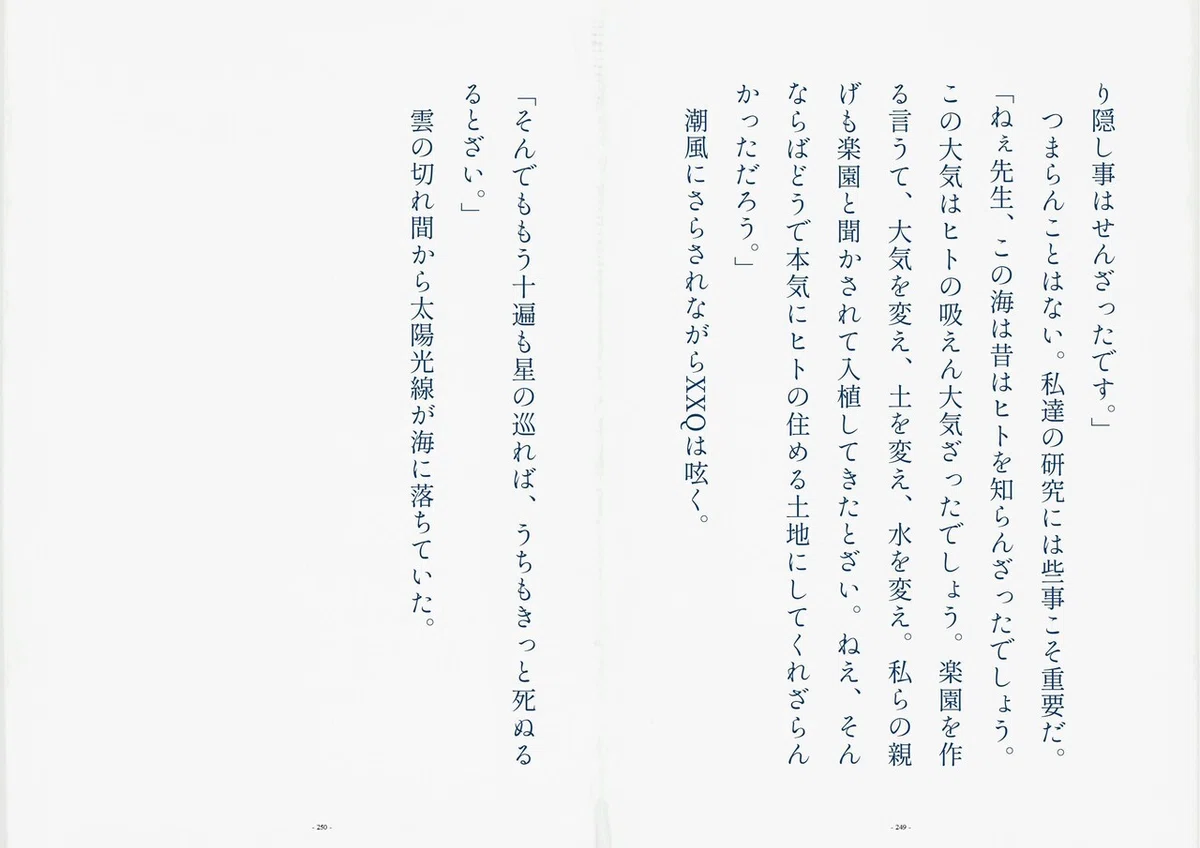 り隠し事はせんざったです。」
つまらんことはない。私達の研究には些事こそ重要だ。
「ねぇ先生、この海は昔はヒトを知らんざったでしょう。
この大気はヒトの吸えん大気ざったでしょう。楽園を作
る言うて、大気を変え、土を変え、水を変え。私らの親
げも楽園と聞かされて入植してきたとざい。ねえ、そん
ならばどうで本気にヒトの住める土地にしてくれざらん
かっただろう。」
潮風にさらされながらXXQは呟く。
- 249 -
「そんでももう十遍も星の巡れば、うちもきっと死ぬる
るとざい。」
雲の切れ間から太陽光線が海に落ちていた。
- 250 -